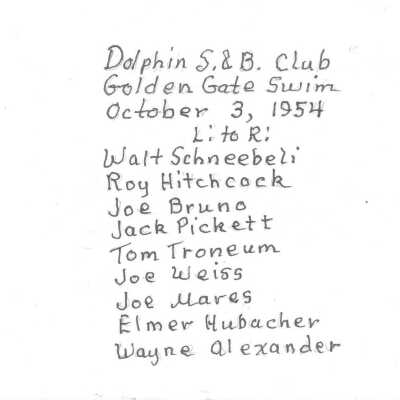 Dolphin S. & B. Club
Golden Gate Swim
October 3, 1954
L: to R:
Walt Schneebeli
Roy Hitchcock
Joe Bruno
Jack Pickett
Tom Troneum
Joe Weiss
Joe Mares
Elmer Hubacher
Wayne Alexander